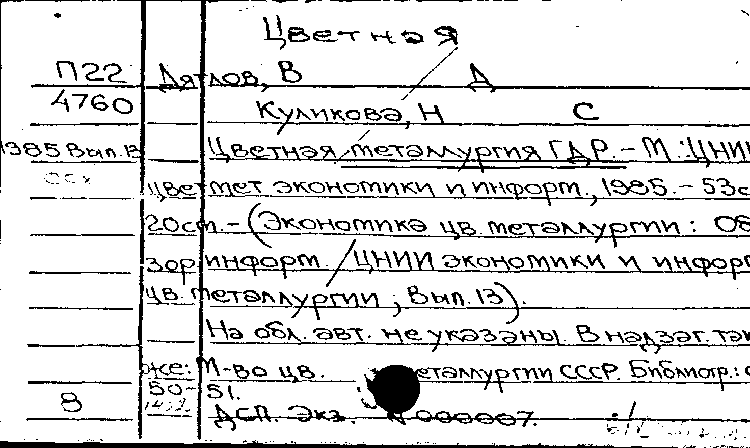 Цветная
П22 Дятлов, В Д
4760 Куликова, Н С
1985 Вып. 13 Цветная металлургия ГДР. – М.: ЦНИИ
цветмет экономики и информ., 1985. – 53с
20см. – (Экономика цв. металлургии: Об
зор. информ. / ЦНИИ экономики и информ
цв. металлургии; Вып. 13).
На обл. авт. не указаны. В надзаг. так
же: М-во цв. металлургии СССР. Библиогр.: с
50-51.
8 ДСП. Экз. N 000007.